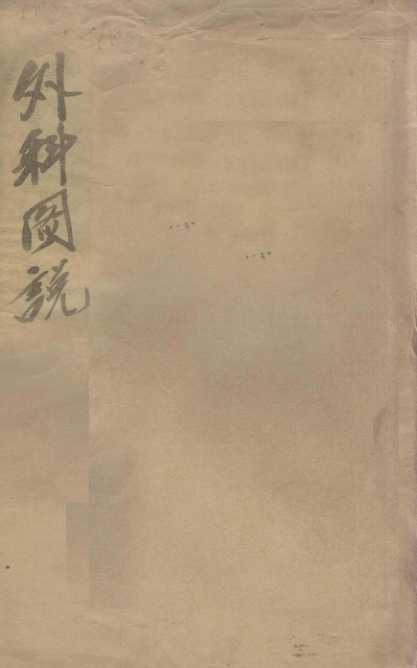 外科圖說